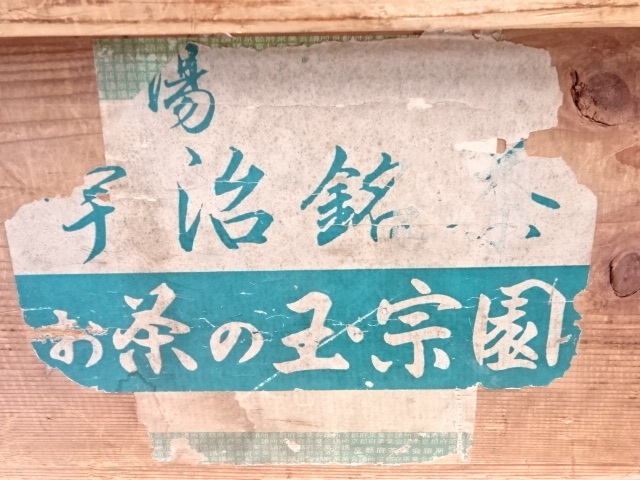 湯
宇治銘茶
お茶の玉宗園